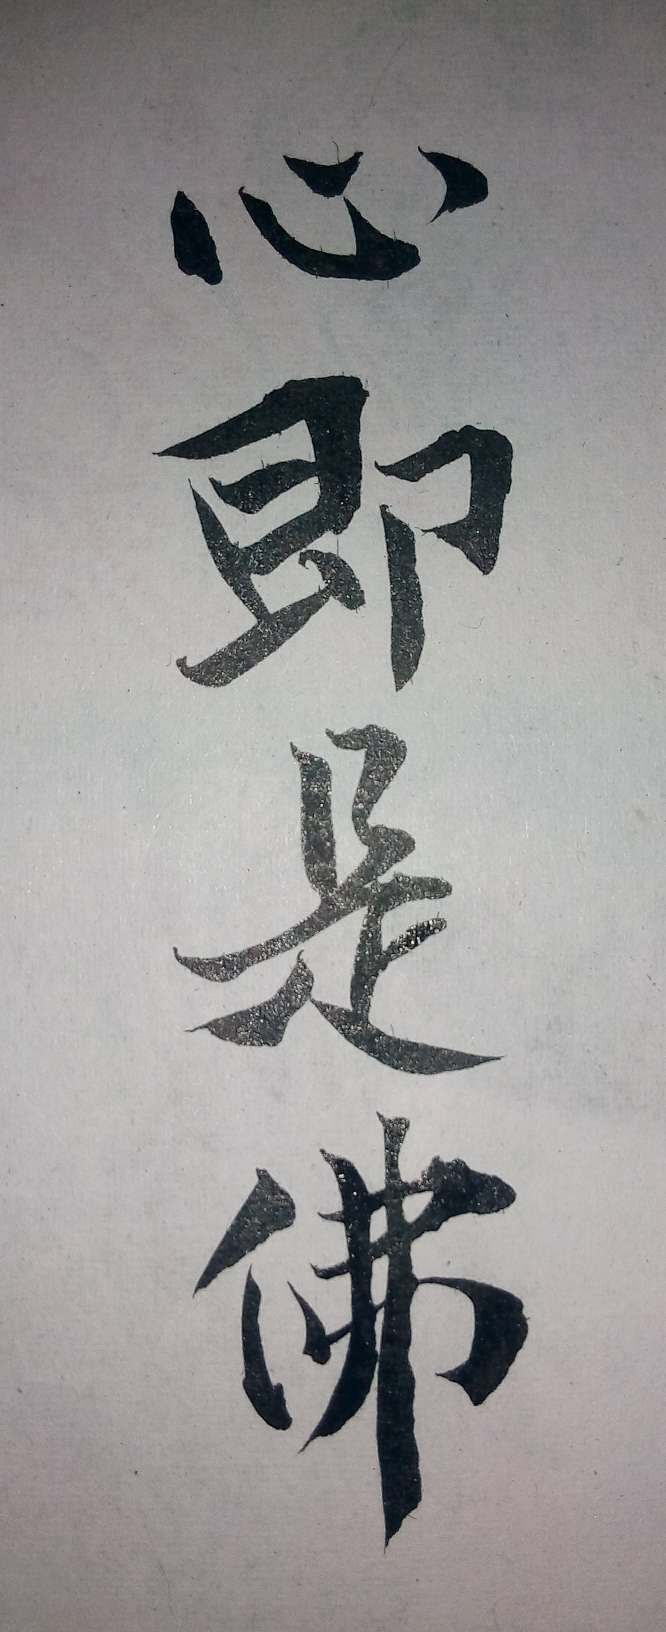 心即是佛